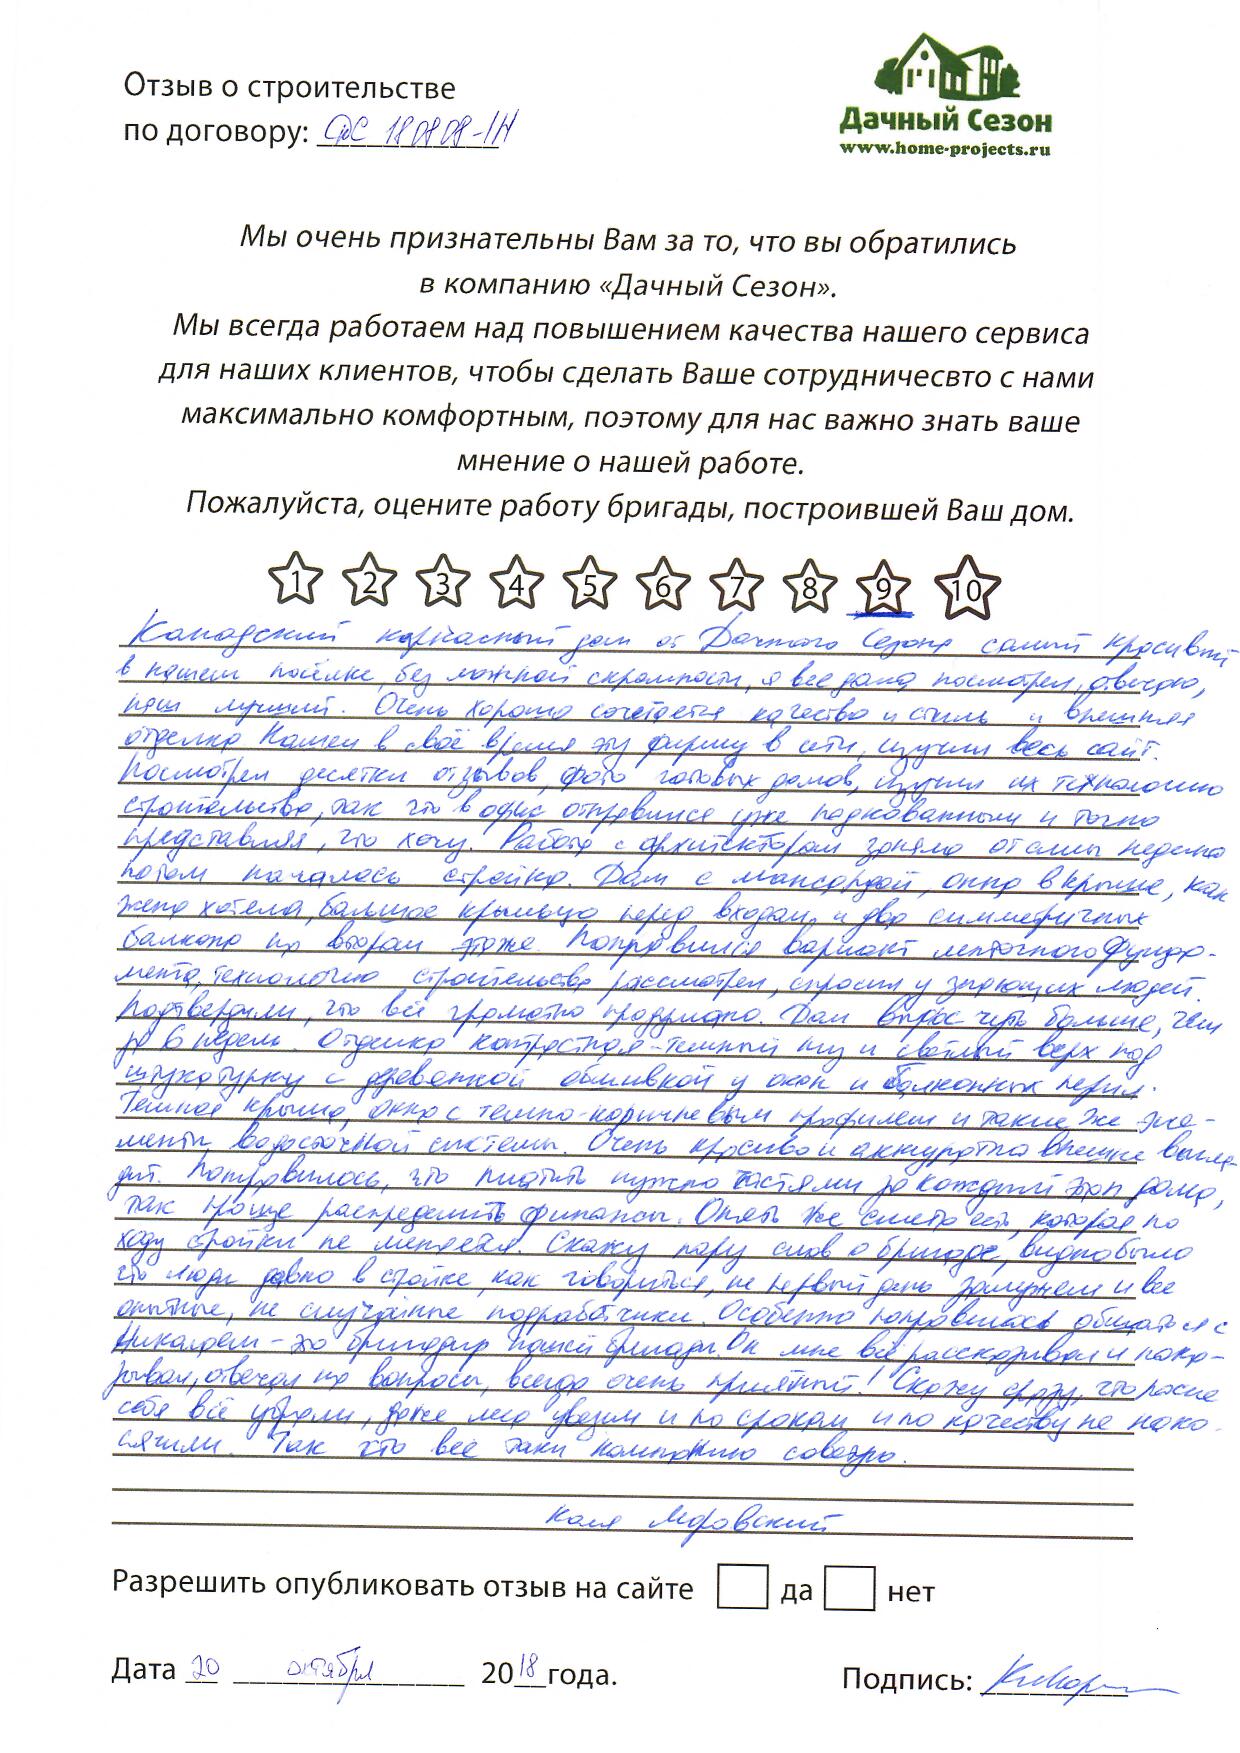 Отзыв о строительстве
по договору: ФДС 180808-1Н
Дачный Сезон
www.home-projects.ru
Мы очень признательны Вам за то, что вы обратились
в компанию «Дачный Сезон».
Мы всегда работаем над повышением качества нашего сервиса
для наших клиентов, чтобы сделать Ваше сотрудничесвто с нами
максимально комфортным, поэтому для нас важно знать ваше
мнение о нашей работе.
Пожалуйста, оцените работу бригады, построившей Ваш дом.
1 2 3 4 5 6 7 8 9 10
Канадский каркасный дом от Дачного Сезона самый красивый
в нашем посёлке, без ложной скромности, я все дома посмотрел, отвечаю,
наш лучший. Очень хорошо сочетается качество и стиль и внешняя
отделка Нашел в своё время эту фирму в сети, изучил весь сайт.
Посмотрел десятки отзывов, фото готовых домов, изучил их технологию
строительства, так что в офис отправился уже подкованным и точно
представляя, что хочу. Работа с архитектором заняла от силы неделю
потом началась стройка. Дом с мансардой, окно в крыше, как
жена хотела, большое крыльцо перед входом, и два симметричных
балкона на втором этаже. Понравился вариант ленточного фунда-
мента, технологию строительства рассмотрел, спросил у знающих людей.
Подтвердили, что всё грамотно продумано. Дом вырос чуть больше, чем
за 6 недель. Отделка контрастная - темный низ и светлый верх под
штукатурку с деревянной обшивкой у окон и балконных перил.
Темная крыша, окна с темно-коричневым профилем и такие же эле-
менты водосточной системы. Очень красиво и аккуратно внешне выгля-
дит. Понравилось, что платить нужно частями за каждый этап дома,
так проще распределить финансы. Опять же смета есть, которая по
ходу стройки не меняется. Скажу пару слов о бригаде, видно было
что люди давно в стройке, как говориться, не первый день замужем и все
опытные, не случайные подработчики. Особенно понравилось общаться с
Николаем - это бригадир нашей бригады. Он мне всё рассказывал и пока-
зывал, отвечал на вопросы, всегда очень приятный! Скажу сразу, что после
себя всё убрали, даже мусор увезли и по срокам и по качеству не нако-
сячили. Так что все таки компанию советую.
Коля Моровский
Разрешить опубликовать отзыв на сайте да нет
Дата 20 октября 2018 года.
Подпись: